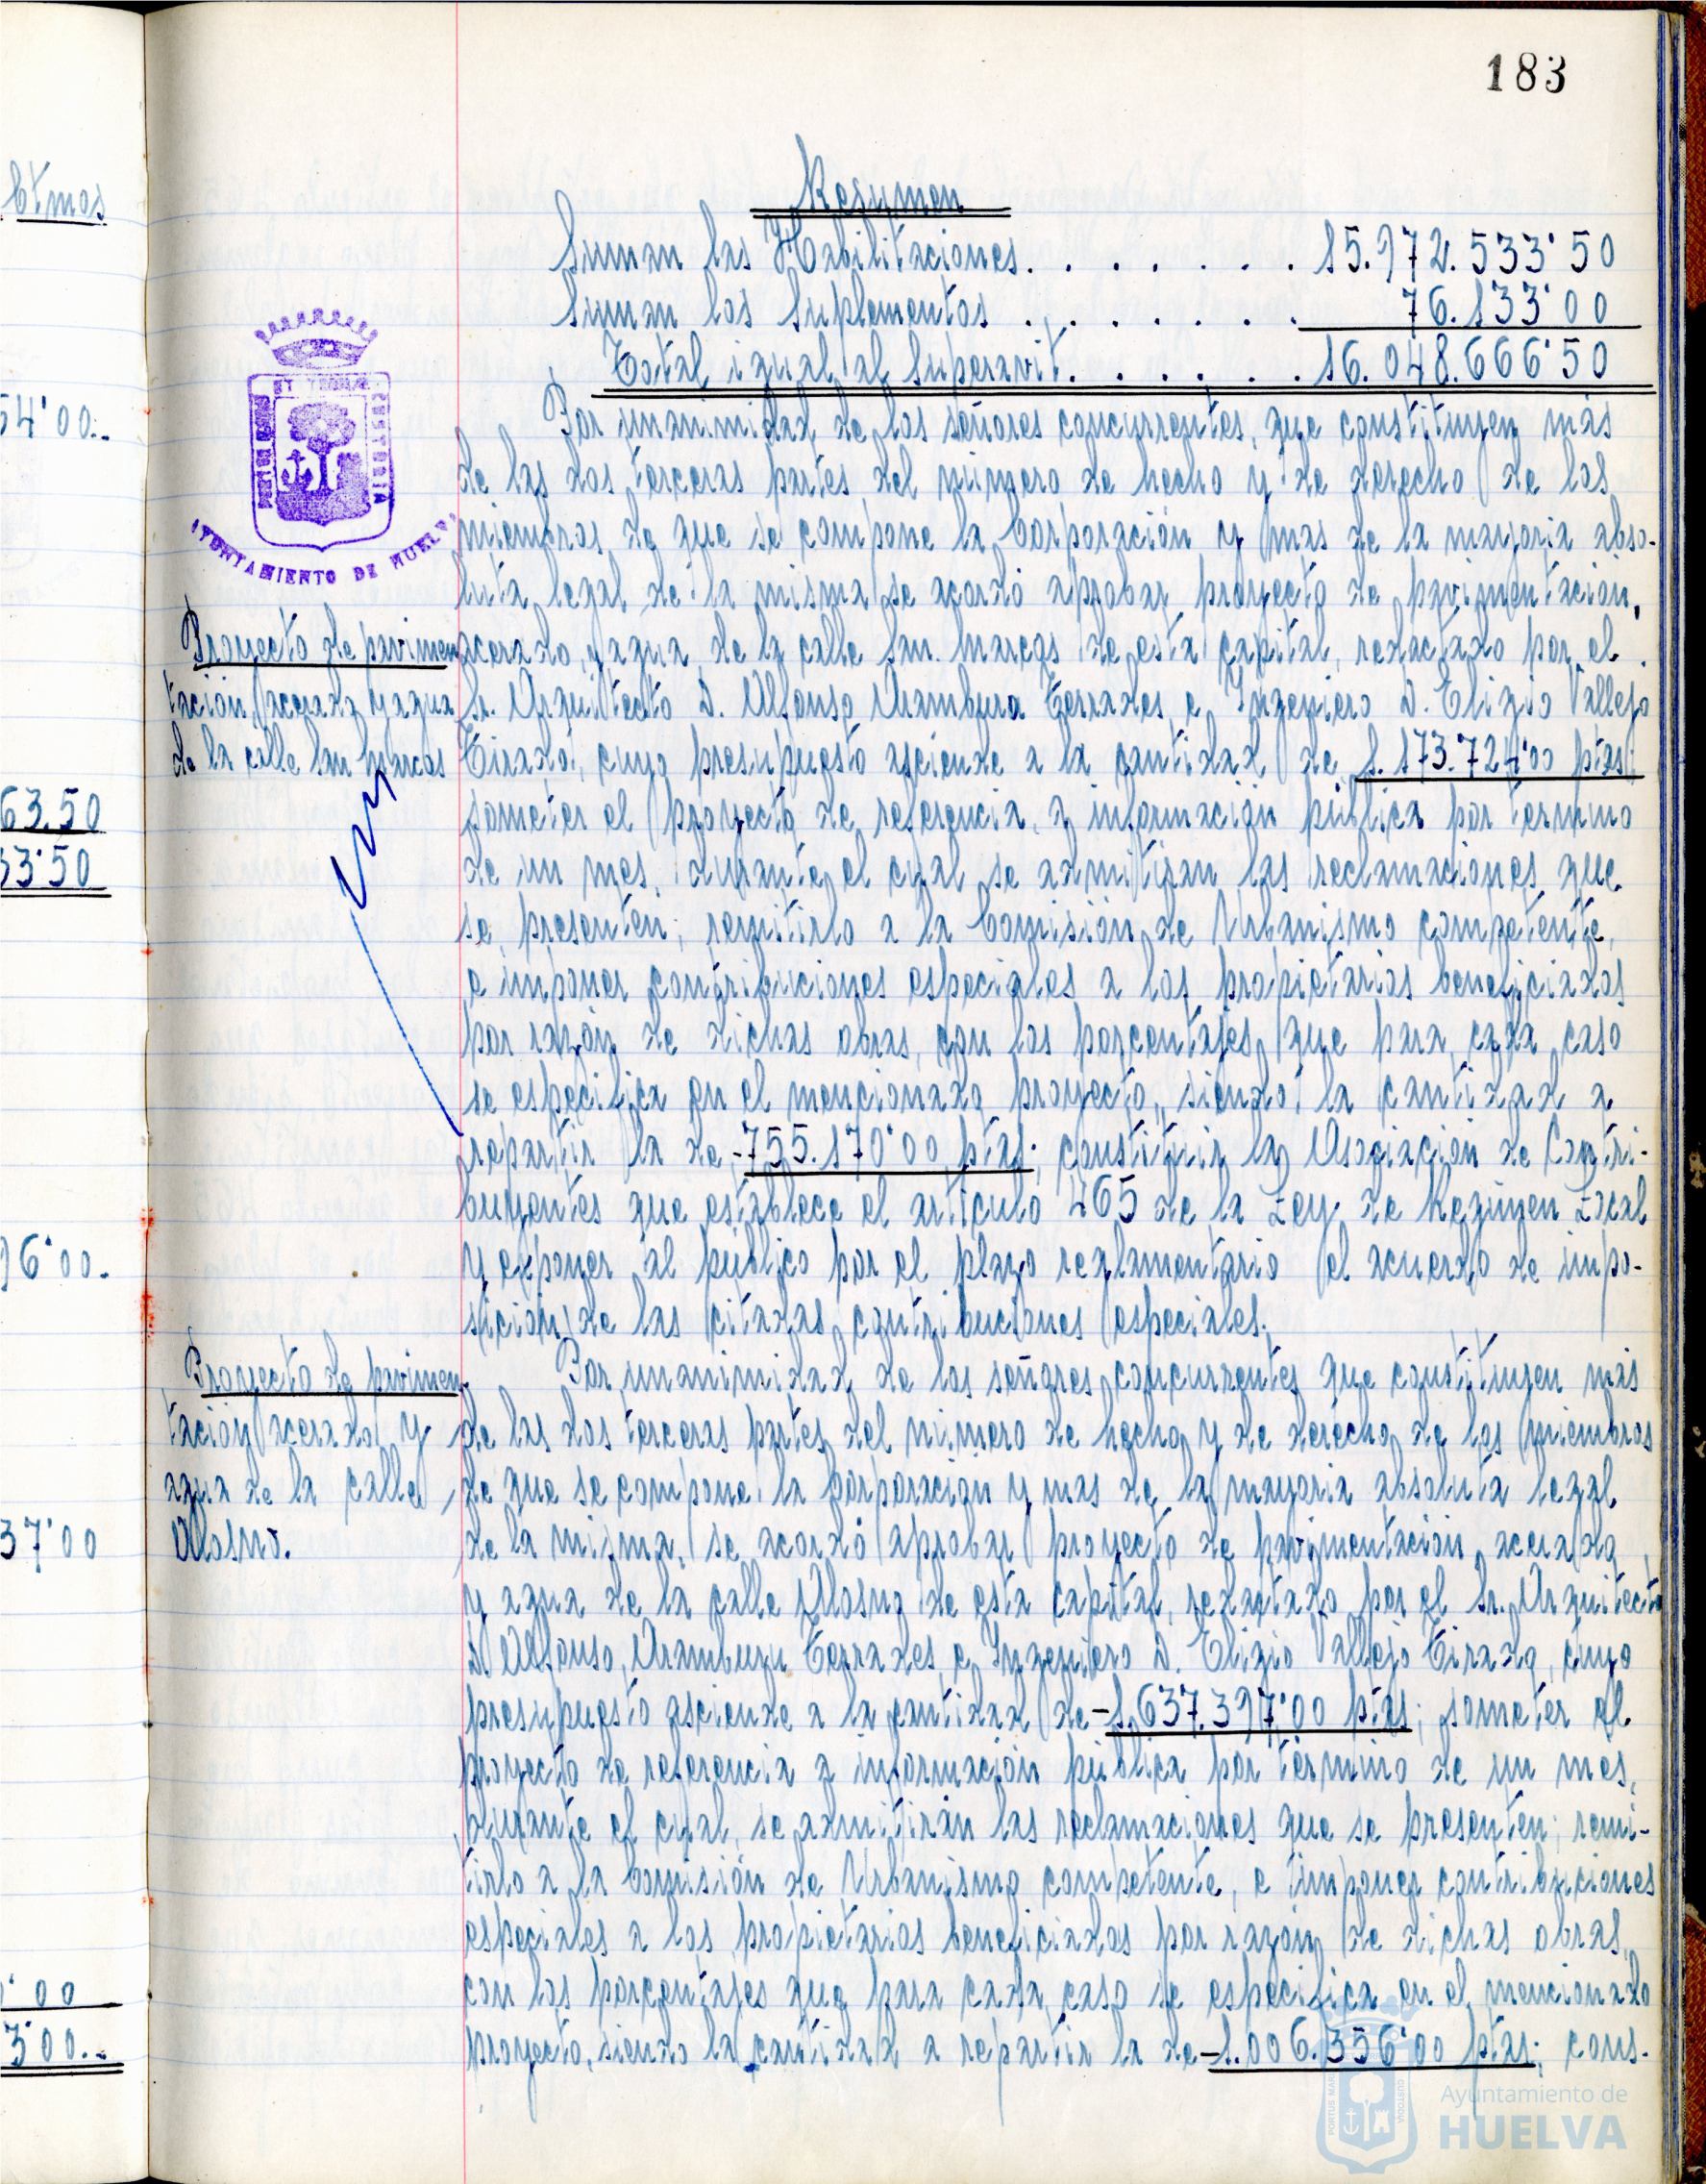 183
Ctmos
54'00.-
63.50
33'50
96'00.
37'00
'00
3'00.-
Resumen
Suman las Habilitaciones. . . . . . . 15.972.533'50
Suman los Suplementos . . . . . . . 76.133'00
Total igual al Superavit. . . . . . 16.048.666'50
Por unanimidad de los señores concurrentes, que constituyen más
de las dos terceras partes del número de hecho y de derecho de los
miembros de que se compone la Corporación y mas de la mayoria abso-
luta legal de la misma se acordó aprobar proyecto de pavimentación,
acerado, y agua de la calle San Marcos de esta capital, redactado por el
Sr. Arquitecto D. Alfonso Aramburu Terrades, e Ingeniero D. Eligio Vallejo
Tirado, cuyo presupuesto asciende a la cantidad de 1.173.724'00 ptas;
someter el proyecto de referencia, a información pública por termino
de un mes, durante el cual se admitiran las reclamaciones que
se presenten; remitirlo a la Comisión de Urbanismo competente,
e imponer contribuciones especiales a los propietarios beneficiados
por razón de dichas obras, con los porcentajes que para cada caso
se especifica en el mencionado proyecto, siendo la cantidad a
repartir la de -755.170'00 ptas; constituir la Asociación de Contri-
buyentes que establece el artículo 465 de la Ley de Regimen Local
y exponer al público por el plazo reglamentario el acuerdo de impo-
sición de las citadas contribuciones especiales.
Por unanimidad de los señores concurrentes que constituyen más
de las dos terceras partes del número de hecho y de derecho de los miembros
de que se compone la Corporación y mas de la mayoria absoluta legal
de la misma, se acordó aprobar proyecto de pavimentación, acerado
y agua de la calle Alosno de esta capital, redactado por el Sr. Arquitecto
D. Alfonso Aramburu Terrades, e Ingeniero D. Eligio Vallejo Tirado, cuyo
presupuesto asciende a la cantidad de -1.637.397'00 ptas; someter el
proyecto de referencia a información pública por término de un mes,
durante el cual, se admitirán las reclamaciones que se presenten; remi-
tirlo a la Comisión de Urbanismo competente, e imponer contribuciones
especiales a los propietarios beneficiados por razón de dichas obras,
con los porcentajes que para cada caso se especifica en el mencionado
proyecto, siendo la cantidad a repartir la de -1.006.356'00 ptas; cons-
AYUNTAMIENTO DE HUELVA
Proyecto de pavimen
tación, acerado y agua
de la calle San Marcos
Proyecto de pavimen
tación acerado y
agua de la calle
Alosno.
Ayuntamiento de
HUELVA